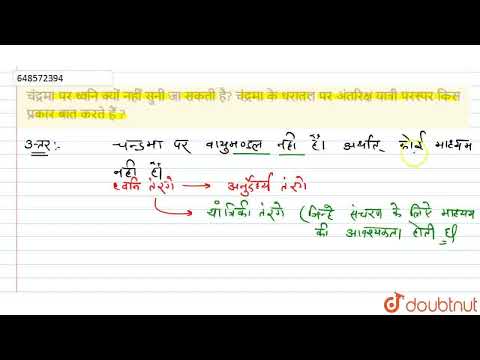 648572394
चंद्रमा पर ध्वनि क्यों नहीं सुनी जा सकती है? चंद्रमा के धरातल पर अंतरिक्ष यात्री परस्पर किस
प्रकार बात करते हैं ?
उत्तर :- चन्द्रमा पर वायुमण्डल नही है। अर्थात कोई माध्यम
नही है।
ध्वनि तंरगे → अनुदैर्ध्य तंरगे
→ यांत्रिकी तंरगे (जिन्हे संचरण के लिऐ माध्यम
की आवश्यकता होती है।
doubtnut